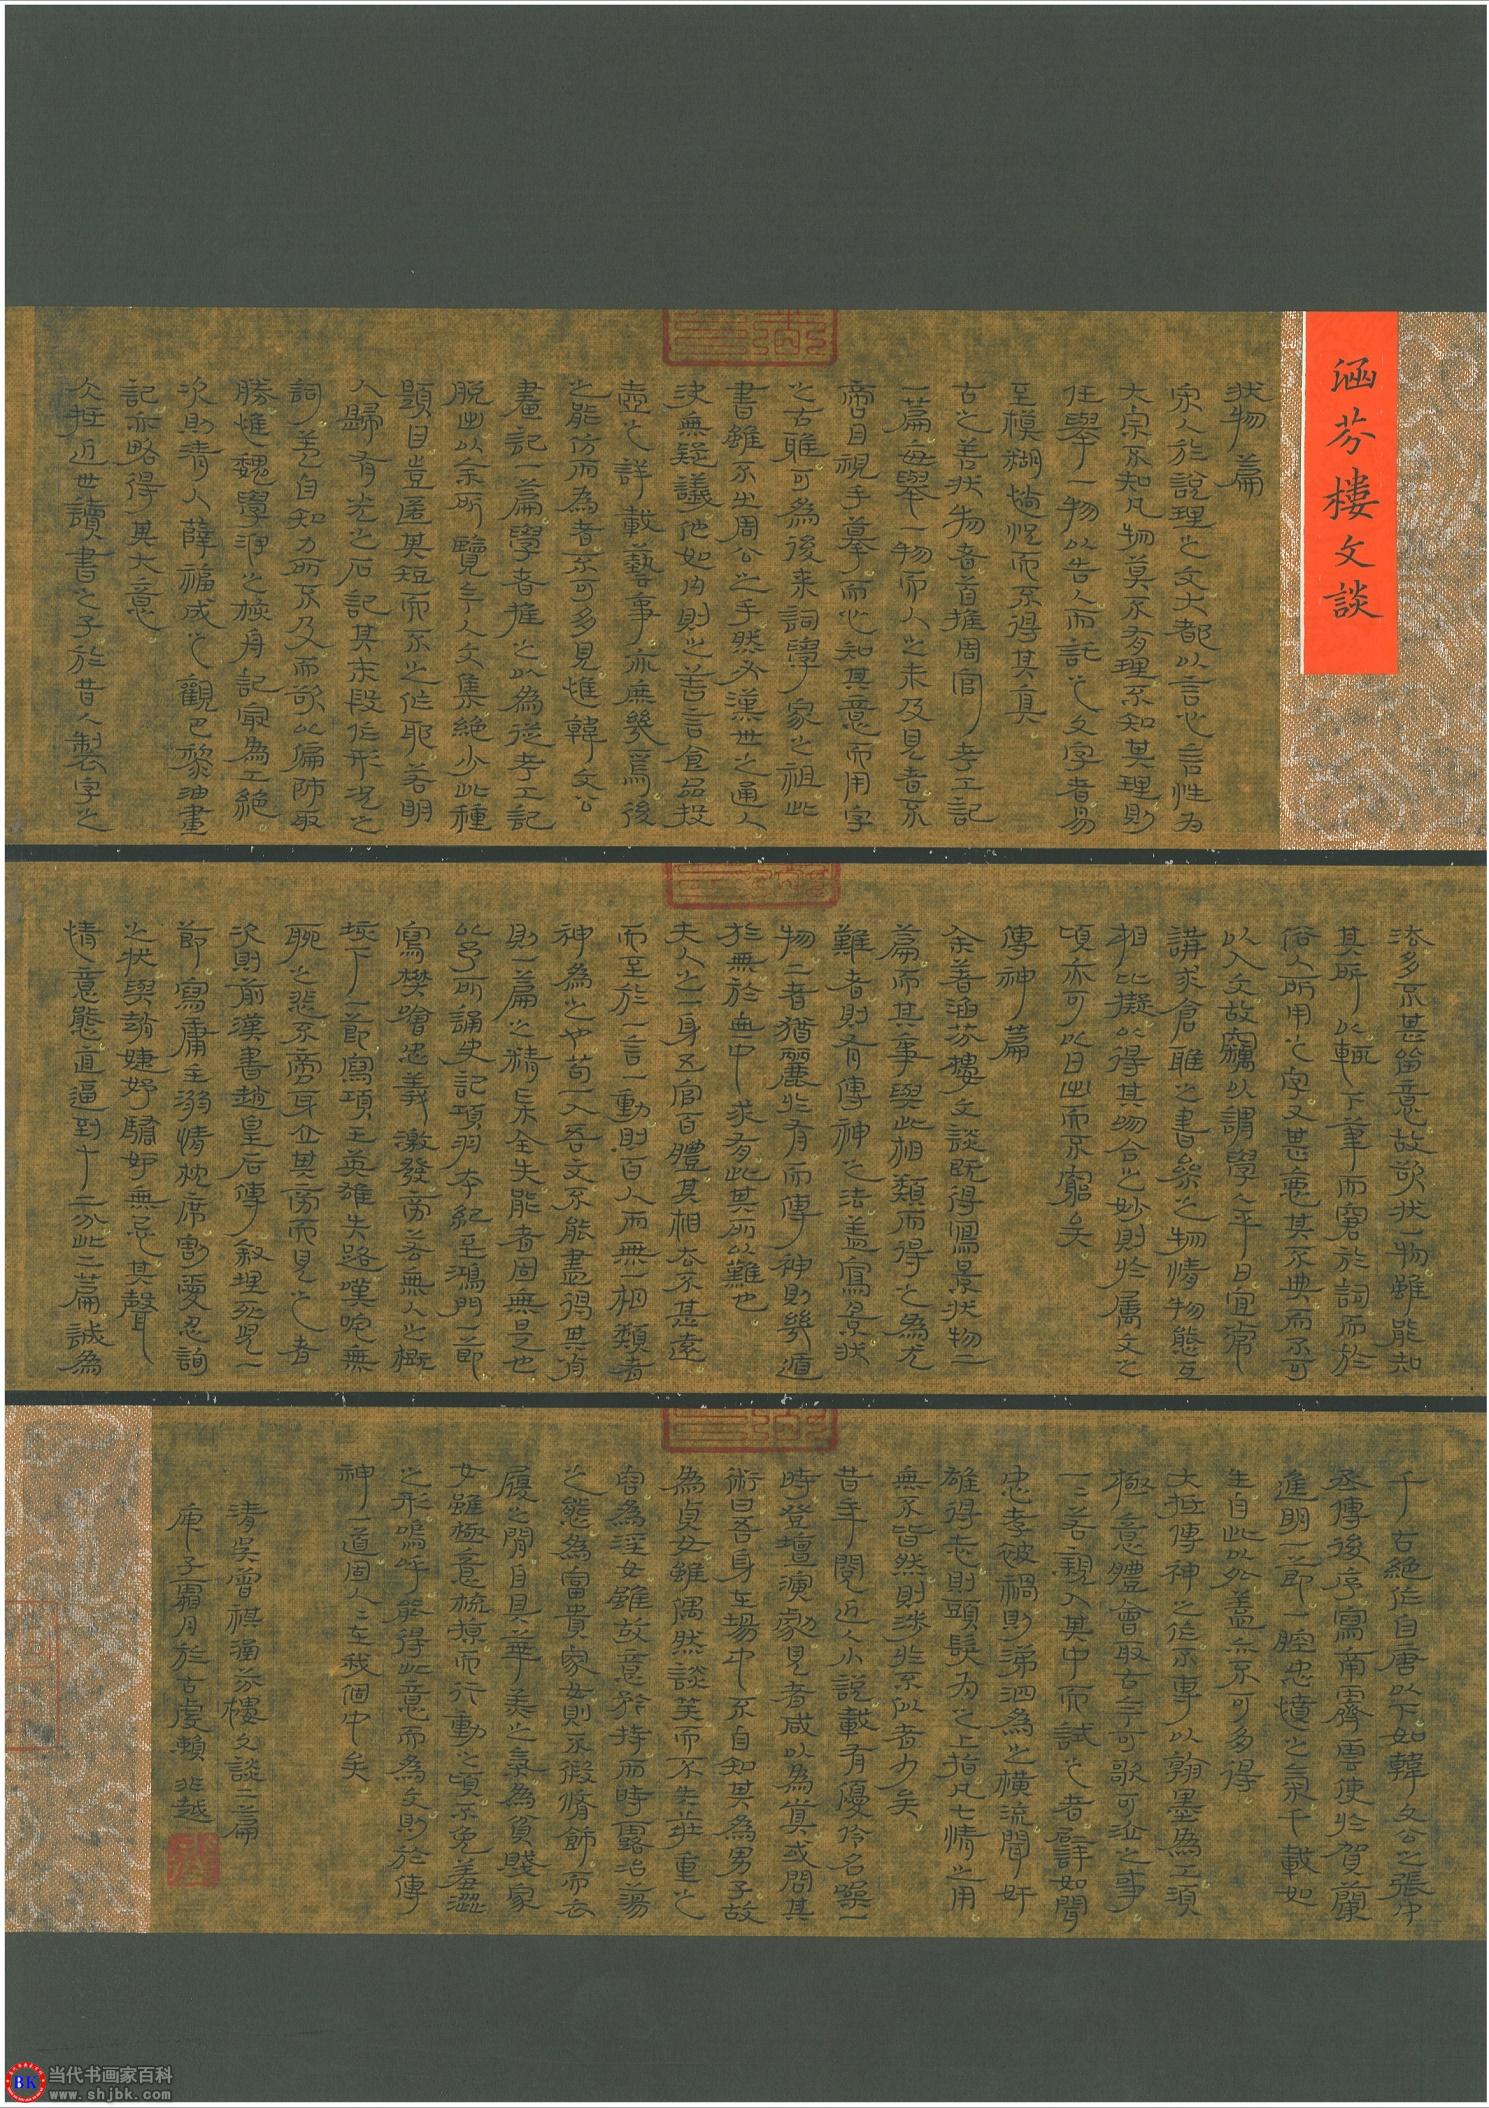 涵芬樓文談
狀物篇
宋人於說理之文大都以言心言性为
大宗不知凡物莫不有理不知其理則
任舉一物以告人而託之文字者易
至模糊惝怳而不得其真
古之善狀物者首推周官考工記
一篇每舉一物而人之未及見者不
啻目視手摹而心知其意而用字
之古雅可為後来詞學家之祖此
書雖不出周公之手然必漢世之通人
決無疑議他如內則之善言食品投
壺之詳載藝事亦庶幾焉後
之能仿而為者不可多見惟韓文公
畫記一篇學者推之以為從考工記
脫出以余所覽今人文集絕少此種
題目豈匿其短而不之作耶若明
人歸有光之石記其末段作形况之
詞盖自知力所不及而欲以偏師取
勝惟魏學洢之核舟記最為工絕
次則清人薛福成之觀巴黎油畫
記亦略得其大意
大抵近世讀書之子於昔人製字之
法多不甚留意故欲狀一物雖能知
其所以輒下筆而窘於詞而於
俗人所用之字又甚惡其不典而不可
以入文故竊以謂學人平日宜常
講求倉雅之書參之物情物態互
相比擬以得其吻合之妙則於属文之
頃亦可以日出而不窮矣
傳神篇
余著涵芬樓文談既得寫景狀物二
篇而其事與此相類而得之為尤
難者則有傳神之法盖寫景狀
物二者猶麗於有而傳神則幾遁
於無於無中求有此其所以難也
夫人之一身五官百體其相去不甚遠
而至於一言一動則百人而無一相類者
神為之也苟一入吾文不能盡得其肖
則一篇之精采全失能者固無是也
以予所誦史記項羽本紀至鴻門一節
寫樊噲忠義激發旁若無人之概
垓下一節寫項王英雄失路嘆咤無
聊之悲不啻身企其旁而見之者
次則前漢書趙皇后傳叙埋死兒一
節寫庸主溺情枕席割愛忍詢
之狀與趙婕妤驕妒無忌其聲
情意態直逼到十二分此二篇誠為
千古絕作自唐以下如韓文公之張中
丞傳後序寫南霽雲使於賀蘭
進明一節一腔忠憤之氣千載如
生自此以外盖亦不可多得
大抵傳神之作不專以翰墨為工須
極意體會取古今可歌可泣之事
一二若親入其中而試之者譬如聞
忠孝被禍則涕泗為之橫流聞奸
雄得志則頭髮为之上指凡七情之用
無不皆然則涉於不似者少矣
昔年閱近人小說載有優伶名噪一
時登壇演劇見者咸以為真或問其
術曰吾身在場中不自知其為男子故
為貞女雖偶然談笑而不失莊重之
容為淫女雖故意矜持而時露冶蕩
之態為富貴家女則不假脩飾而衣
履之間自具華美之氣為貧賤家
女雖極意梳掠而行動之頃不免羞澀
之形嗚呼能得此意而為文則於傳
神一道固人人在我個中矣
清吳曾祺涵芬樓文談二篇
庚子霜月於古虔賴非越
当代书画家百科
www.shjbk.com
BK